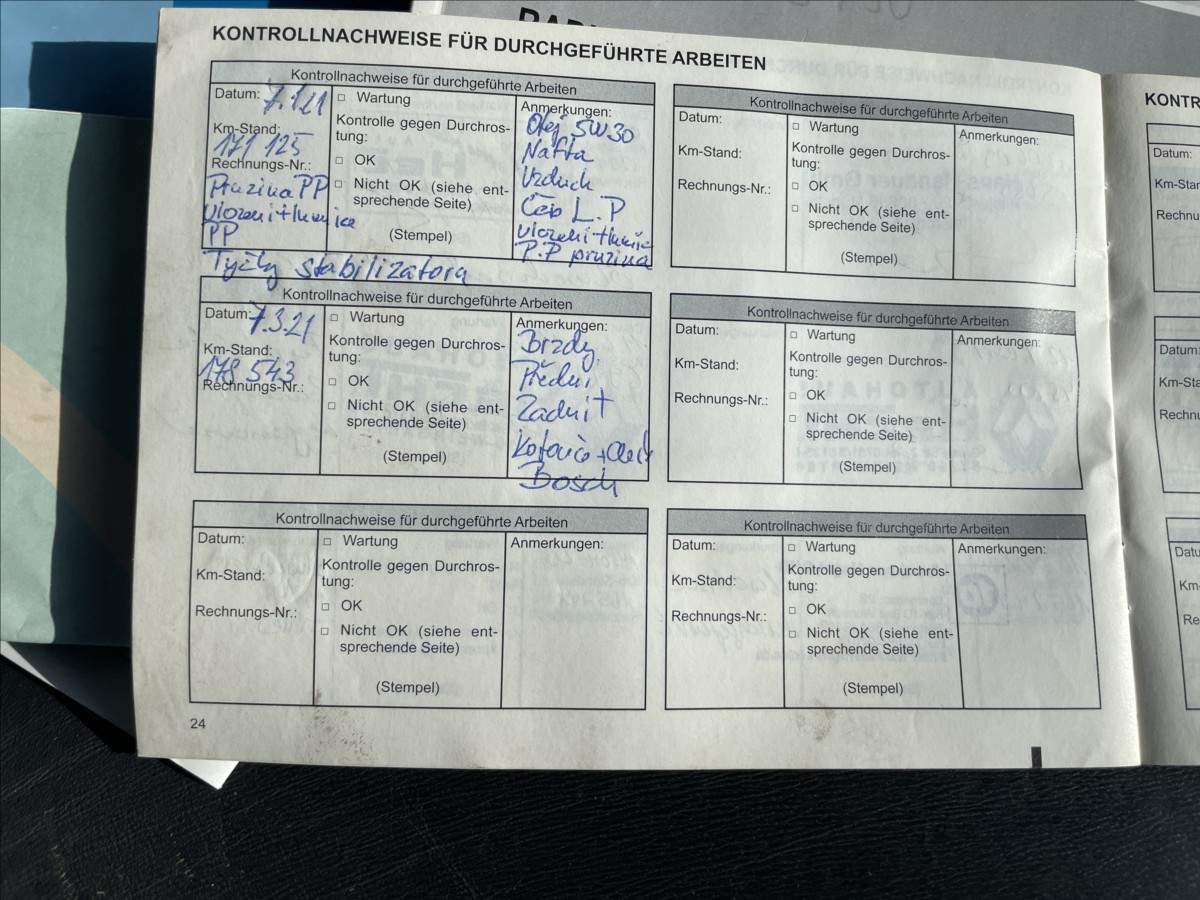 KONTROLLNACHWEISE FÜR DURCHGEFÜHRTE ARBEITEN
Kontrollnachweise für durchgeführte Arbeiten
Datum: 7.1.21
Km-Stand:
171 125
Rechnungs-Nr.:
Pružina PP
PP
Tyčky stabilizátora
□ Wartung
Kontrolle gegen Durchros-
tung:
□ OK
□ Nicht OK (siehe ent-
sprechende Seite)
(Stempel)
Anmerkungen:
Olej 5W30
Nafta
Vzduch
Čap L.P
P.P pružina
Kontrollnachweise für durchgeführte Arbeiten
Datum:
Km-Stand:
Rechnungs-Nr.:
□ Wartung
Kontrolle gegen Durchros-
tung:
□ OK
□ Nicht OK (siehe ent-
sprechende Seite)
(Stempel)
Anmerkungen:
Kontrollnachweise für durchgeführte Arbeiten
Datum: 7.3.21
Km-Stand:
178 543
Rechnungs-Nr.:
□ Wartung
Kontrolle gegen Durchros-
tung:
□ OK
□ Nicht OK (siehe ent-
sprechende Seite)
(Stempel)
Anmerkungen:
Brzdy
Předni
Zadni +
Bosch
Kontrollnachweise für durchgeführte Arbeiten
Datum:
Km-Stand:
Rechnungs-Nr.:
□ Wartung
Kontrolle gegen Durchros-
tung:
□ OK
□ Nicht OK (siehe ent-
sprechende Seite)
(Stempel)
Anmerkungen:
Kontrollnachweise für durchgeführte Arbeiten
Datum:
Km-Stand:
Rechnungs-Nr.:
□ Wartung
Kontrolle gegen Durchros-
tung:
□ OK
□ Nicht OK (siehe ent-
sprechende Seite)
(Stempel)
Anmerkungen:
Kontrollnachweise für durchgeführte Arbeiten
Datum:
Km-Stand:
Rechnungs-Nr.:
□ Wartung
Kontrolle gegen Durchros-
tung:
□ OK
□ Nicht OK (siehe ent-
sprechende Seite)
(Stempel)
Anmerkungen:
24
KONTR
Datum:
Km-Sta
Rechnu
Datum:
Km-Sta
Rechnu
Datu
Km-
Re